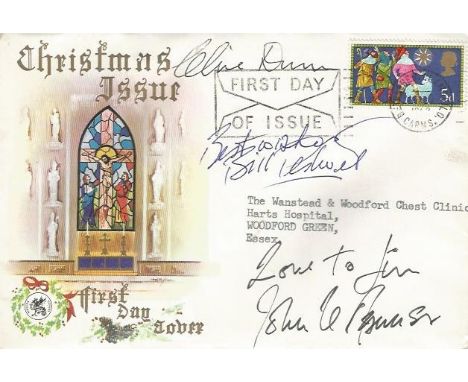 Christmas
Issue
Clive Dunn
FIRST DAY
OF ISSUE
5d
Best wishes
Bill Pertwee
The Wanstead & Woodford Chest Clinic
Harts Hospital,
WOODFORD GREEN,
Essex
Love to Jim
John Le Mesurier
First
Day
Cover